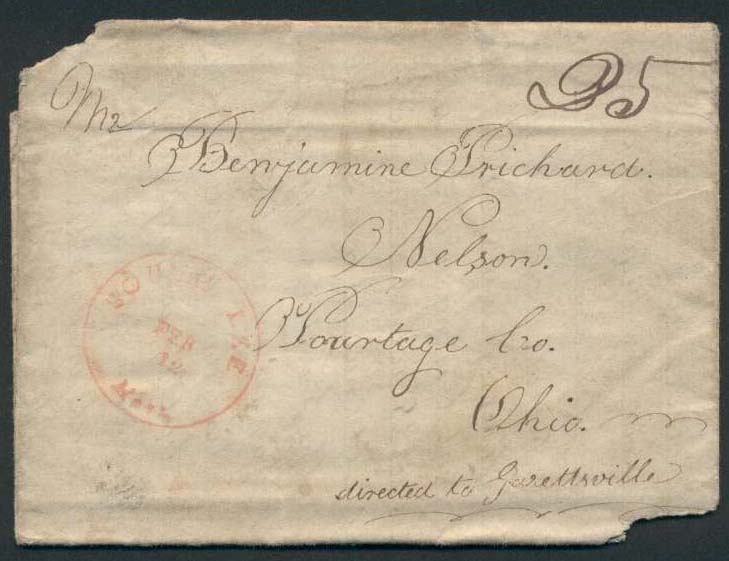 Mr
25
Benjamine Prichard.
Nelson.
Pourtage Co.
Ohio.
directed to Garettsville
SOUTH LEE
FEB
12
Mass